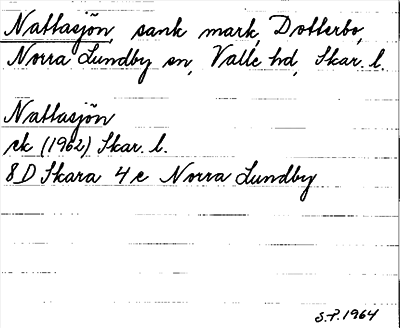 Nattasjön, sank mark, Dotterbo,
Norra Lundby sn, Valle hd, Skar. l.
Nattasjön
ek (1962) Skar. l.
8D Skara 4 e Norra Lundby
S.P. 1964